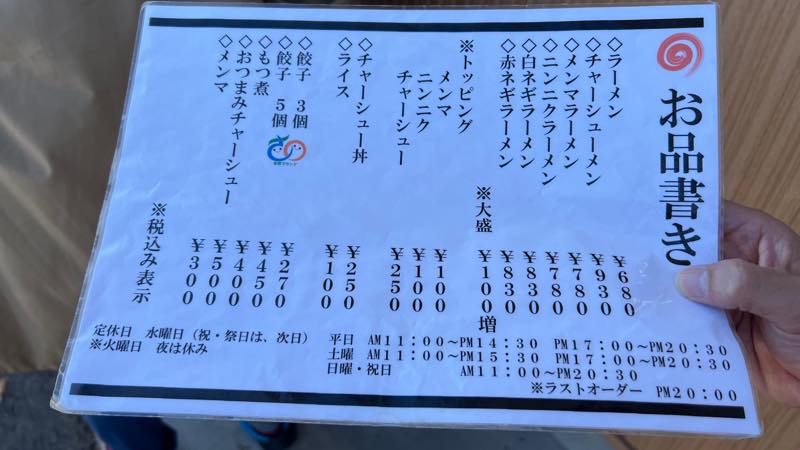 お品書き
◇ラーメン ¥680
◇チャーシューメン ¥930
◇メンマラーメン ¥780
◇ニンニクラーメン ¥780
◇白ネギラーメン ¥830
◇赤ネギラーメン ¥830
※大盛 ¥100増
※トッピング
メンマ ¥100
ニンニク ¥100
チャーシュー ¥250
◇チャーシュー丼 ¥250
◇ライス ¥100
◇餃子 3個 ¥270
◇餃子 5個 ¥450
◇もつ煮 ¥400
◇おつまみチャーシュー ¥500
◇メンマ ¥300
※税込み表示
定休日 水曜日（祝・祭日は、次日）
※火曜日 夜は休み
平日 AM11：00～PM14：30 PM17：00～PM20：30
土曜 AM11：00～PM15：30 PM17：00～PM20：30
日曜・祝日 AM11：00～PM20：30
※ラストオーダー PM20：00